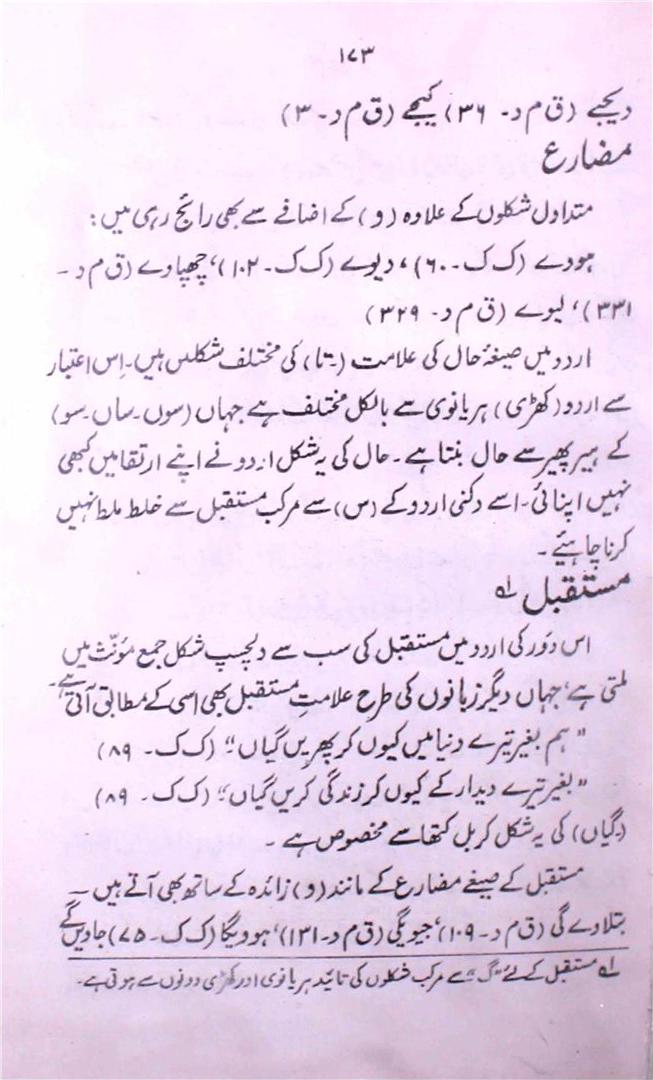 ۱۷۳
دیجیے (ق م د۔ ۳۶) کیجیے (ق م د۔ ۳)
مضارع
متداول شکلوں کے علاوہ (و) کے اضافے سے بھی رائج رہی ہیں:
ہووے (ک ک۔ ۶۰)، دیوے (ک ک۔ ۱۰۲)، چھپاوے (ق م د۔
۳۳۱)، لیوے (ق م د۔ ۳۲۹)
اردو میں صیغۂ حال کی علامت (۔تا) کی مختلف شکلیں ہیں۔ اِس اعتبار
سے اردو (کھڑی) ہریانوی سے بالکل مختلف ہے جہاں (سوں۔ ساں۔ سو)
کے ہیر پھیر سے حال بنتا ہے۔ حال کی یہ شکل اردو نے اپنے ارتقا میں کبھی
نہیں اپنائی۔ اسے دکنی اردو کے (س) سے مرکب مستقبل سے خلط ملط نہیں
کرنا چاہیئے۔
مستقبل لہ
اس دَور کی اردو میں مستقبل کی سب سے دلچسپ شکل جمع مؤنّث میں
ملتی ہے، جہاں دیگر زبانوں کی طرح علامتِ مستقبل بھی اسی کے مطابق آتی ہے۔
"ہم بغیر تیرے دنیا میں کیوں کر پھریں گیاں"؛ (ک ک۔ ۸۹)
"بغیر تیرے دیدار کے کیوں کر زندگی کریں گیاں"؛ (ک ک۔ ۸۹)
(۔گیاں) کی یہ شکل کربل کتھا سے مخصوص ہے۔
مستقبل کے صیغے مضارع کے مانند (و) زائدہ کے ساتھ بھی آتے ہیں۔
بتلاوے گی (ق م د۔ ۱۰۹)، جیویگی (ق م د۔ ۱۳۱)، ہوویگا (ک ک۔ ۷۵) جاویں گے
لہ مستقبل کے لئے "گ" سے مرکب شکلوں کی تائید ہریانوی اور کھڑی دونوں سے ہوتی ہے۔